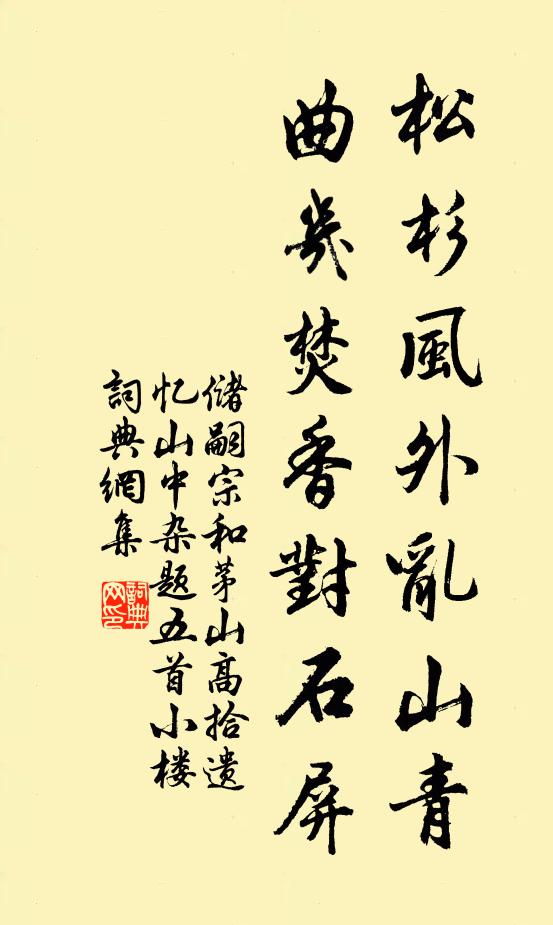 松杉風外亂山青
曲幾焚香對石屏
儲嗣宗和茅山高拾遺
忆山中杂題五首小楼
詞典網集
詞典
网印